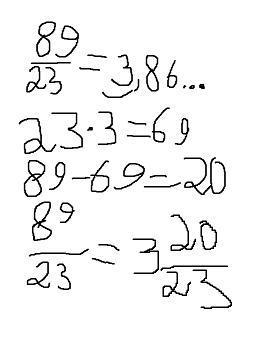 89/23 = 3,86...
23·3=69
89-69=20
89/23 = 3 20/23